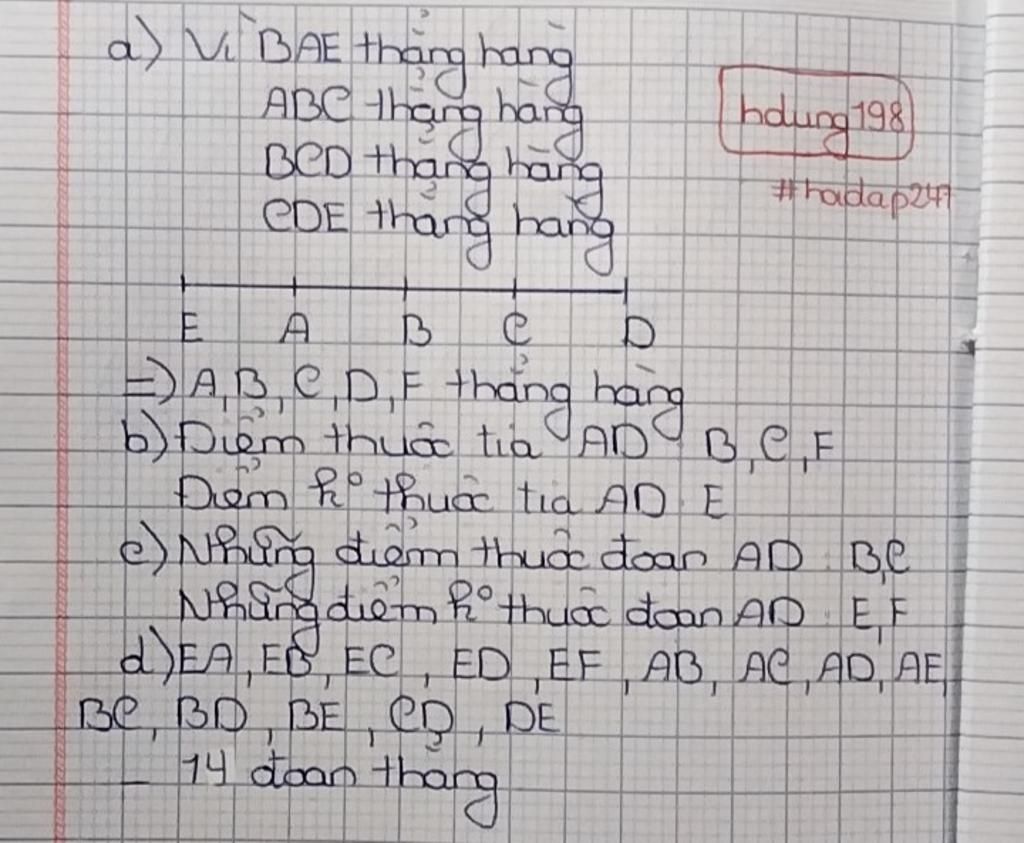 a) Vì BAE thẳng hàng
ABC thẳng hàng
BCD thẳng hàng
CDE thẳng hàng
hdung198
#hoidap247
E A B C D
=) A, B, C, D, F thẳng hàng
b) Điểm thuộc tia AD B, C, F
Điểm ko thuộc tia AD : E
c) Những điểm thuộc đoạn AD : B, C
Những điểm ko thuộc đoạn AD : E, F
d) EA, EB, EC, ED, EF, AB, AC, AD, AE,
BC, BD, BE, CD, DE
_ 14 đoạn thẳng